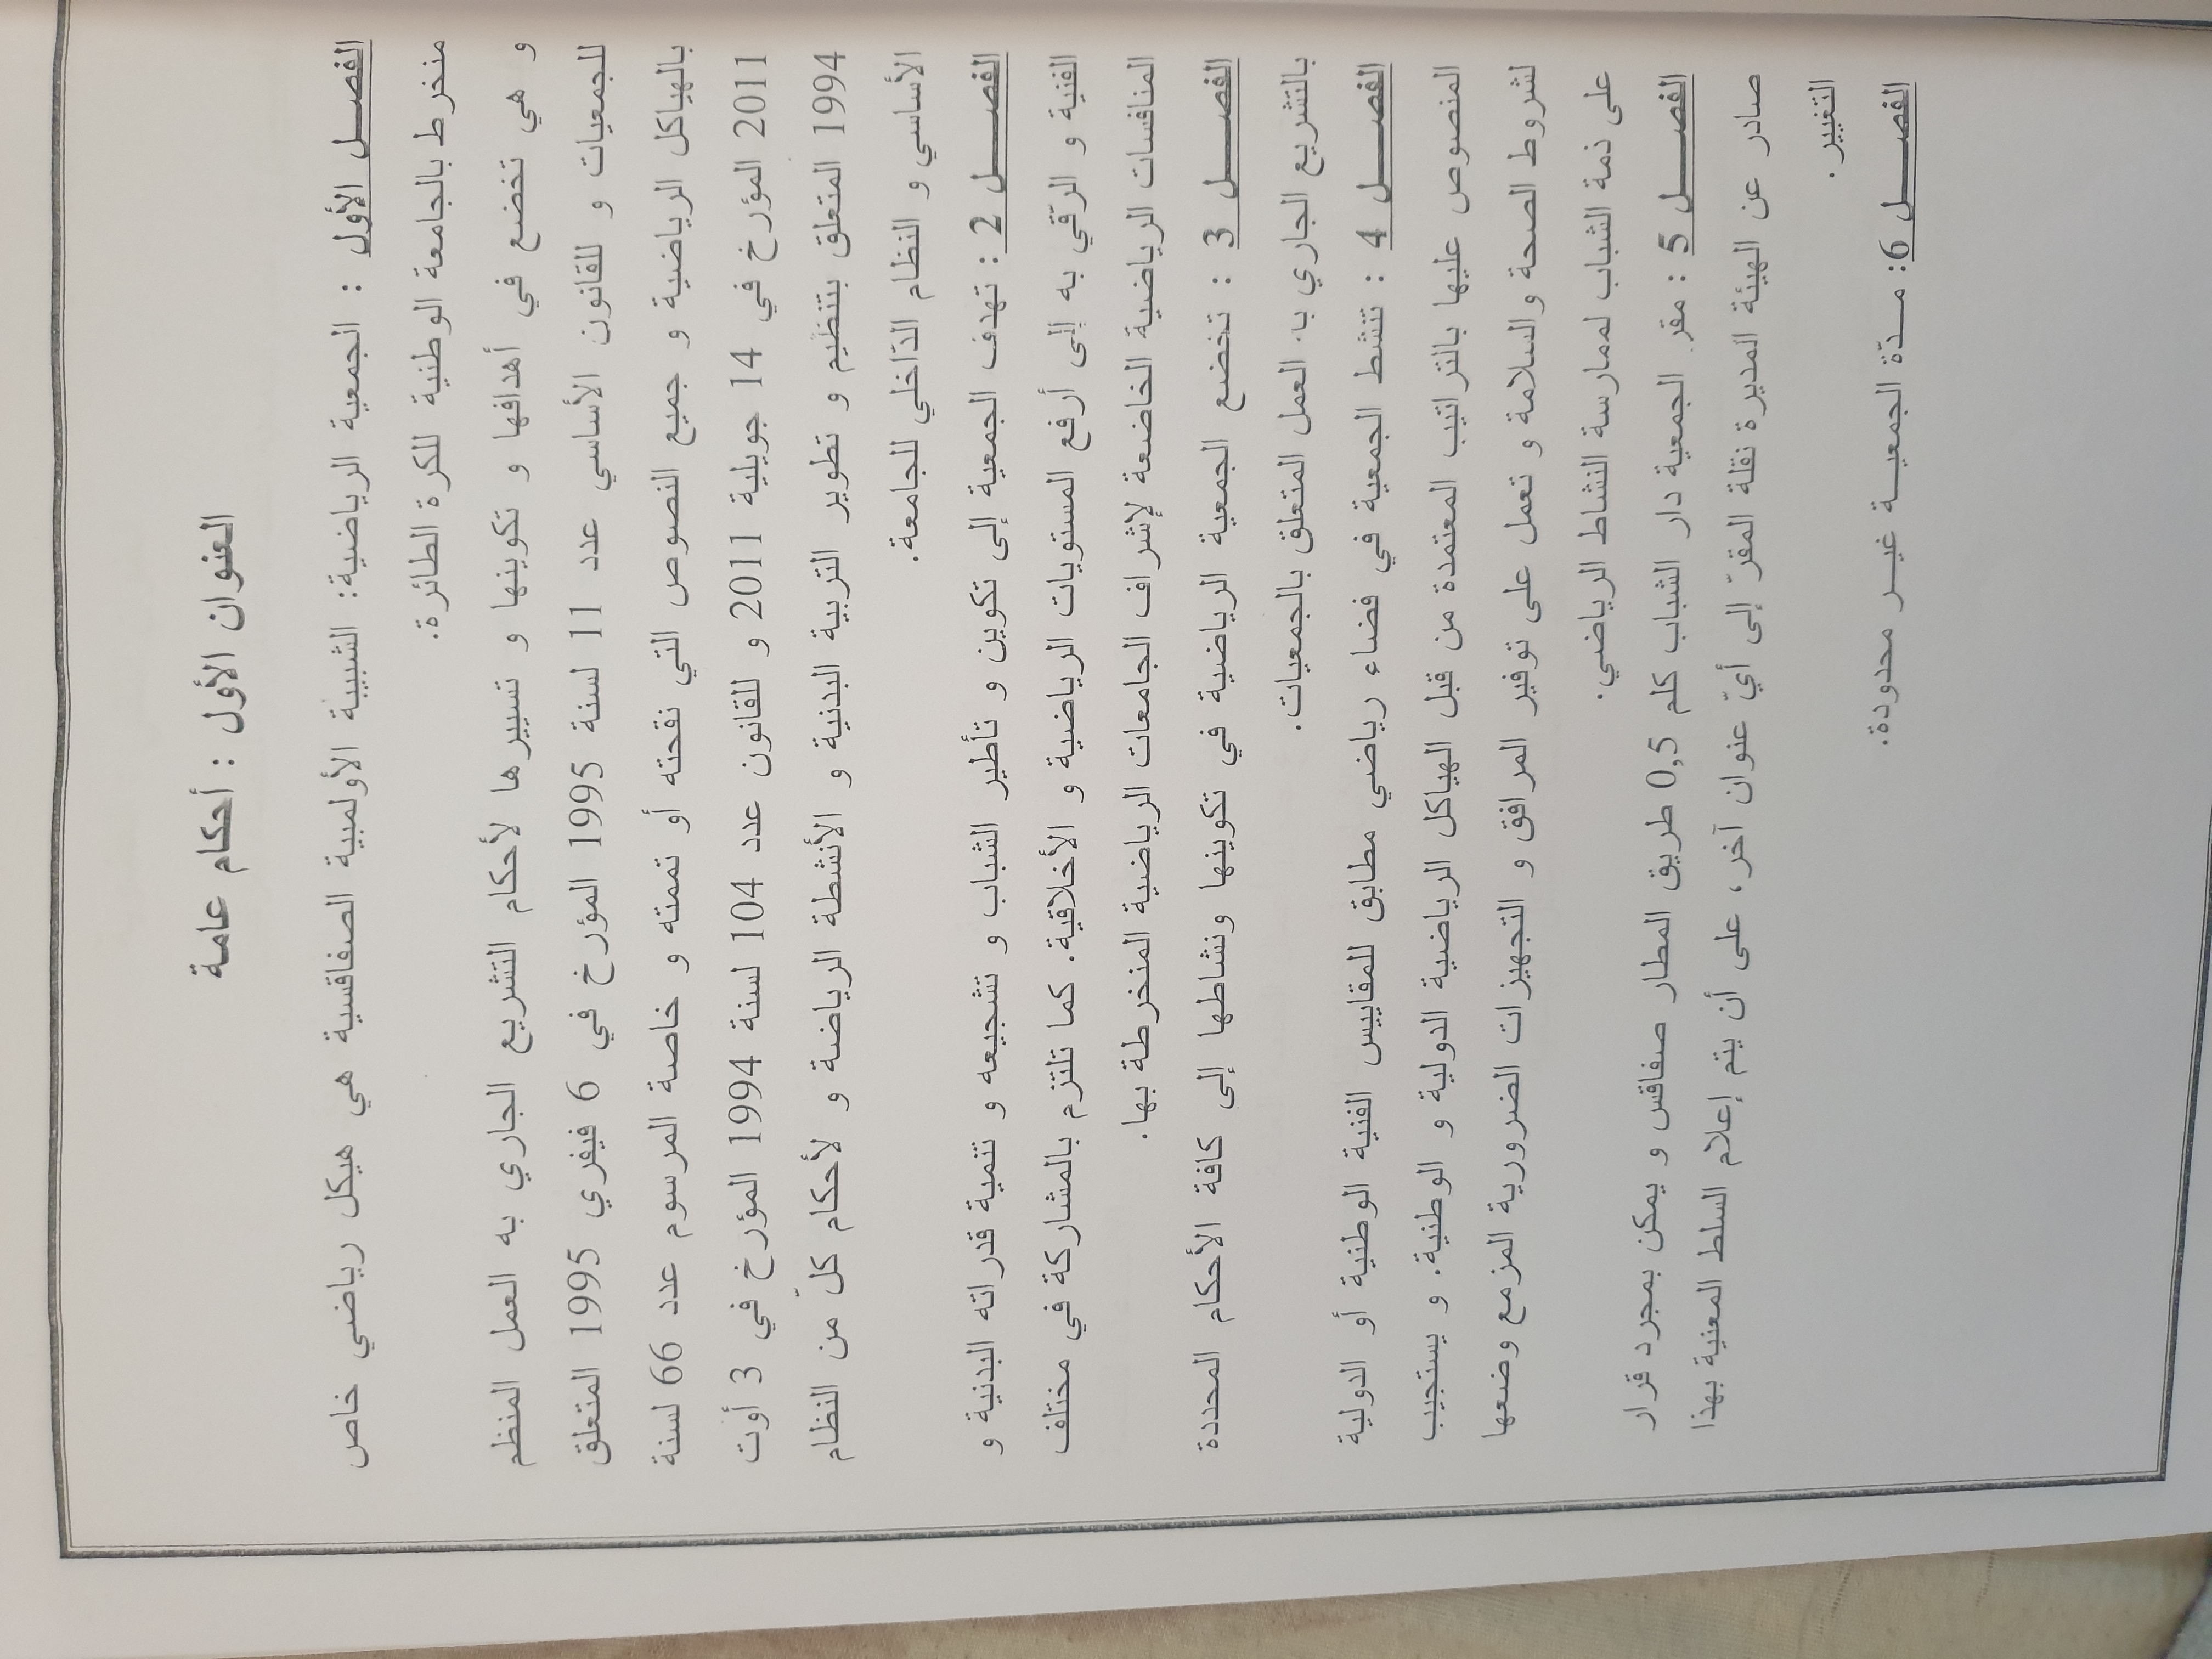 العنوان الأول : أحكام عامة
الفصــل الأول : الجمعية الرياضية: الشبيبة الأولمبية الصفاقسية هي هيكل رياضي خاص
منخرط بالجامعة الوطنية للكرة الطائرة.
و هي تخضع في أهدافها و تكوينها و تسييرها لأحكام التشريع الجاري به العمل المنظم
للجمعيات و للقانون الأساسي عدد 11 لسنة 1995 المؤرخ في 6 فيفري 1995 المتعلق
بالهياكل الرياضية و جميع النصوص التي نقحته أو تممته و خاصة المرسوم عدد 66 لسنة
2011 المؤرخ في 14 جويلية 2011 و للقانون عدد 104 لسنة 1994 المؤرخ في 3 أوت
1994 المتعلق بتنظيم و تطوير التربية البدنية و الأنشطة الرياضة و لأحكام كلّ من النظام
الأساسي و النظام الدّاخلي للجامعة.
الفصــــل 2 : تهدف الجمعية إلى تكوين و تأطير الشباب و تشجيعه و تنمية قدراته البدنية و
الفنية و الرّقي به إلى أرفع المستويات الرياضية و الأخلاقية. كما تلتزم بالمشاركة في مختلف
المنافسات الرياضية الخاضعة لإشراف الجامعات الرياضية المنخرطة بها.
الفصــــل 3 : تخضع الجمعية الرياضية في تكوينها ونشاطها إلى كافة الأحكام المحددة
بالتشريع الجاري ب. العمل المتعلق بالجمعيات.
الفصــــل 4 : تنشط الجمعية في فضاء رياضي مطابق للمقاييس الفنية الوطنية أو الدولية
المنصوص عليها بالتراتيب المعتمدة من قبل الهياكل الرياضية الدولية و الوطنية. و يستجيب
لشروط الصحة والسلامة و تعمل على توفير المرافق و التجهيزات الضرورية المزمع وضعها
على ذمة الشباب لممارسة النشاط الرياضي.
الفصــــل 5 : مقر الجمعية دار الشباب كلم 0,5 طريق المطار صفاقس و يمكن بمجرد قرار
صادر عن الهيئة المديرة نقلة المقرّ إلى أيّ عنوان آخر، على أن يتم إعلام السلط المعنية بهذا
التغيير.
الفصــــل 6: مــدّة الجمعيــة غيــر محدودة.